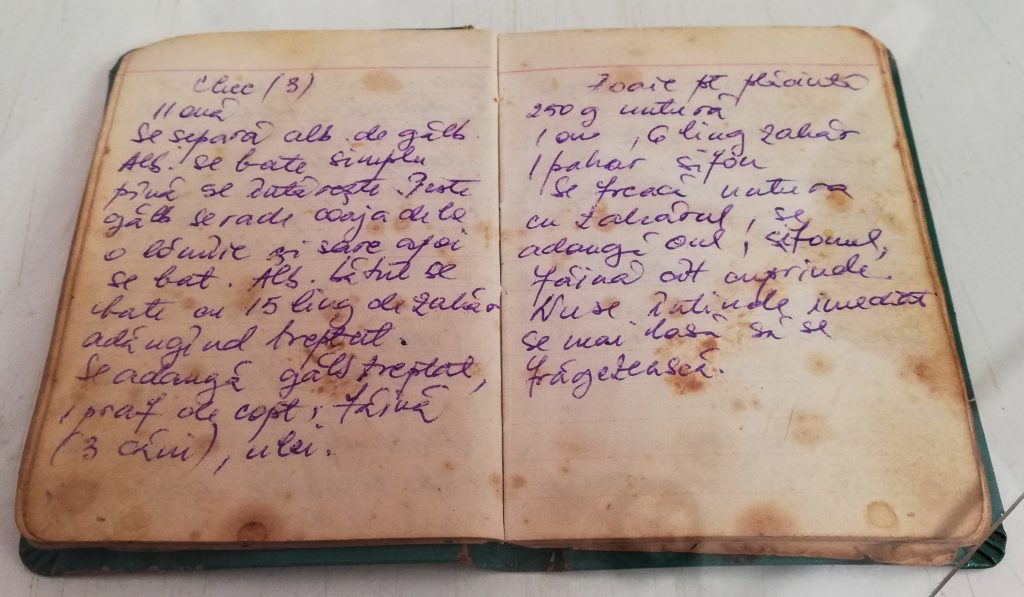 Chec (3)
11 ouă
Se separă alb. de gălb.
Alb. se bate simplu
pînă se întărește. Peste
gălb se rade coaja de la
o lămîie și sare apoi
se bat. Alb. bătut se
bate cu 15 ling de zahăr
adăugînd treptat.
Se adaugă gălb treptat,
1 praf de copt; făină
(3 căni), ulei.
Foaie pt plăcintă
250 g untură
1 ou, 6 ling zahăr
1 pahar sifon
Se freacă untura
cu zahărul, se
adaugă oul, sifonul,
făină cît cuprinde.
Nu se întinde imediat
se mai lasă să se
frăgezească.